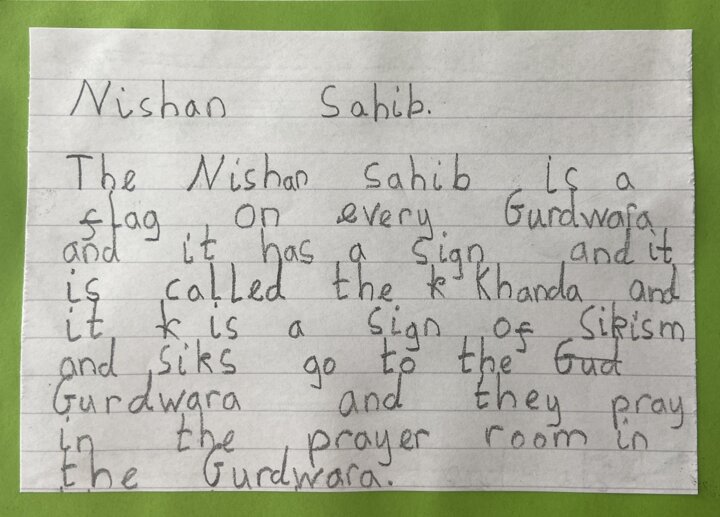 Nishan Sahib.
The Nishan Sahib is a
flag on every Gurdwara
and it has a sign and it
is called the k Khanda and
it k is a sign of Sikism
and Siks go to the Gud
Gurdwara and they pray
in the prayer room in
the Gurdwara.